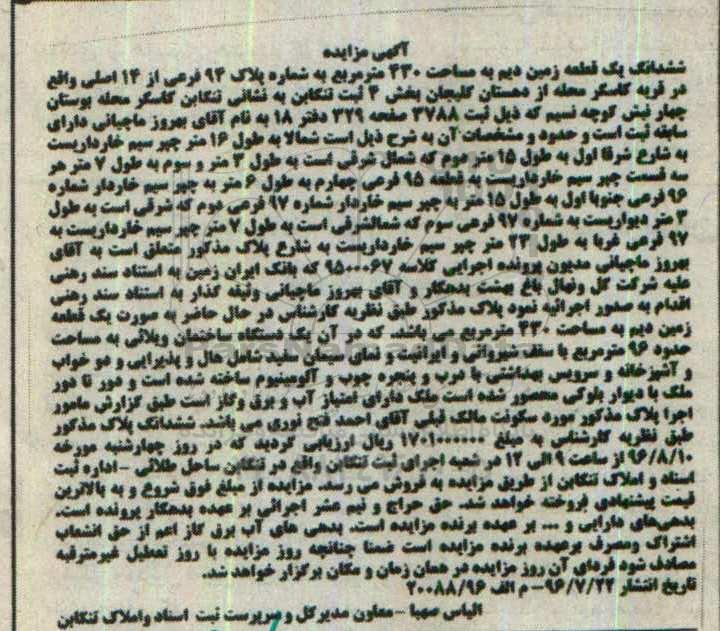 آگهی مزایده
ششدانگ یک قطعه زمین دیم به مساحت ۴۳۰ مترمربع به شماره پلاک ۹۴ فرعی از ۱۴ اصلی واقع
در قریه کاسگر محله از دهستان گلیجان بخش ۴ ثبت تنکابن به نشانی تنکابن کاسگر محله بوستان
چهار نبش کوچه نسیم که ذیل ثبت ۳۷۸۸ صفحه ۳۲۹ دفتر ۱۸ به نام آقای بهروز ماچیانی دارای
سابقه ثبت است و حدود و مشخصات آن به شرح ذیل است شمالا به طول ۱۶ متر چپر سیم خارداریست
به شارع شرقا اول به طول ۱۵ متر دوم که شمال شرقی است به طول ۳ متر و سوم به طول ۷ متر هر
سه قسمت چپر سیم خارداریست به قطعه ۹۵ فرعی چهارم به طول ۶ متر به چپر سیم خاردار شماره
۹۶ فرعی جنوبا اول به طول ۱۵ متر به چپر سیم خاردار شماره ۹۷ فرعی دوم که شرقی است به طول
۳ متر دیواریست به شماره ۹۷ فرعی سوم که شمالشرقی است به طول ۷ متر چپر سیم خارداریست به
۹۷ فرعی غربا به طول ۲۳ متر چپر سیم خارداریست به شارع پلاک مذکور متعلق است به آقای
بهروز ماچیانی مدیون پرونده اجرایی کلاسه ۹۵۰۰۰۶۷ که بانک ایران زمین به استناد سند رهنی
علیه شرکت گل ونهال باغ بهشت بدهکار و آقای بهروز ماچیانی وثیقه گذار به استناد سند رهنی
اقدام به صدور اجرائیه نمود پلاک مذکور طبق نظریه کارشناس در حال حاضر به صورت یک قطعه
زمین دیم به مساحت ۴۳۰ مترمربع می باشد. که در آن یک دستگاه ساختمان ویلائی به مساحت
حدود ۹۶ مترمربع با سقف شیروانی و ایرانیت و نمای سیمان سفید شامل هال و پذیرایی و دو خواب
و آشپزخانه و سرویس بهداشتی با درب و پنجره چوب و آلومینیوم ساخته شده است و دور تا دور
ملک با دیوار بلوکی محصور شده است ملک دارای امتیاز آب و برق وگاز است طبق گزارش مامور
اجرا پلاک مذکور مورد سکونت مالک قبلی آقای احمد فتح نوری می باشد. ششدانگ پلاک مذکور
طبق نظریه کارشناس به مبلغ ۱۷۰۱۰۰۰۰۰۰ ریال ارزیابی گردید که در روز چهارشنبه مورخه
۹۶/۸/۱۰ از ساعت ۹ الی ۱۲ در شعبه اجرای ثبت تنکابن واقع در تنکابن ساحل طلائی -اداره ثبت
اسناد و املاک تنکابن از طریق مزایده به فروش می رسد. مزایده از مبلغ فوق شروع و به بالاترین
قیمت پیشنهادی فروخته خواهد شد. حق حراج و نیم عشر اجرائی بر عهده بدهکار پرونده است.
بدهی‌های دارایی و ... بر عهده برنده مزایده است. بدهی های آب برق گاز اعم از حق انشعاب
اشتراک ومصرف برعهده برنده مزایده است ضمنا چنانچه روز مزایده با روز تعطیل غیرمترقبه
مصادف شود فردای آن روز مزایده در همان زمان و مکان برگزار خواهد شد.
تاریخ انتشار ۹۶/۷/۲۲- م الف ۲۰۰۸۸/۹۶
الیاس صهبا -معاون مدیرکل و سرپرست ثبت اسناد واملاک تنکابن